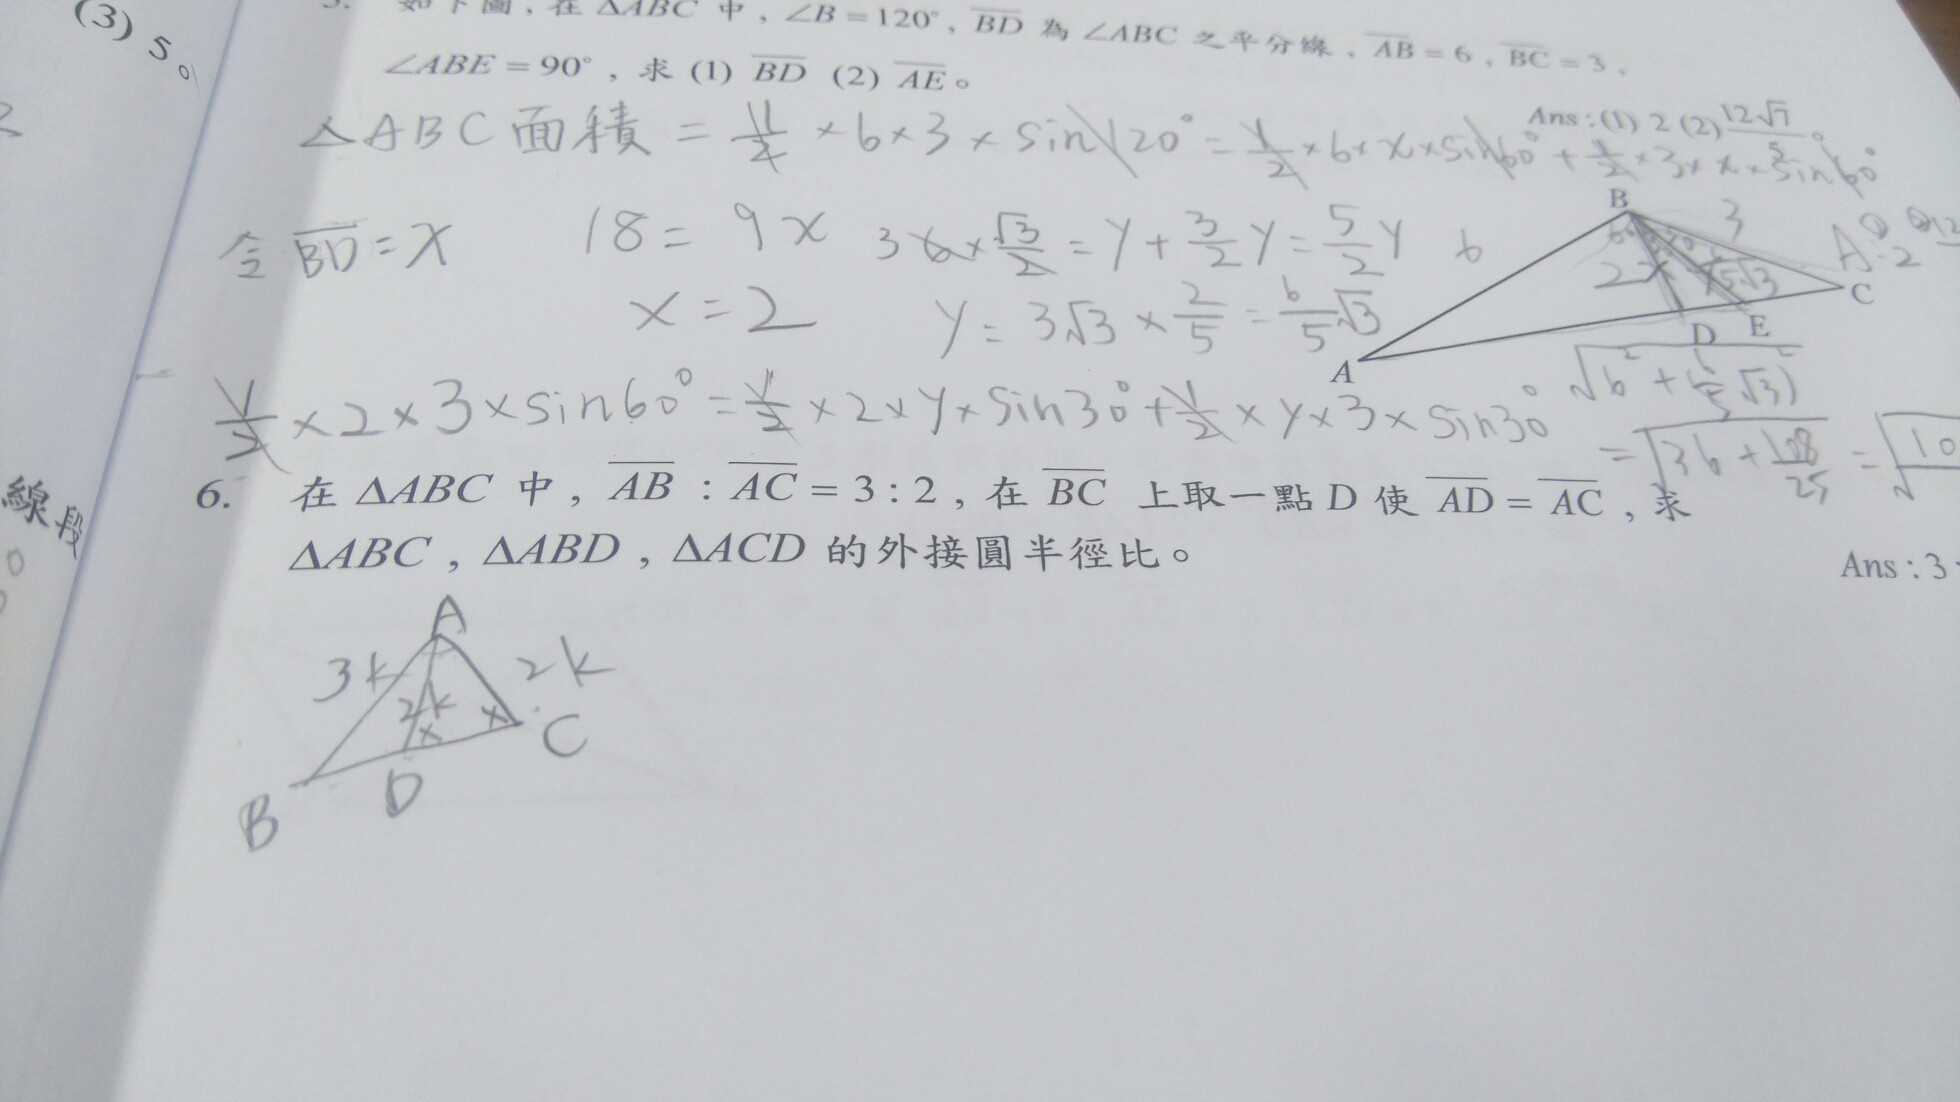 (3) 5。
如下圖，在 ΔABC 中，∠B = 120°，BD 為 ∠ABC 之平分線，AB = 6，BC = 3，
∠ABE = 90°，求 (1) BD (2) AE。
Ans : (1) 2 (2) 12√7/5
ΔABC面積 = 1/2 × 6 × 3 × sin120° = 1/2 × 6 × x × sin60° + 1/2 × 3 × x × sin60°
令 BD = x 18 = 9x 3 6 × √3/2 = y + 3/2 y = 5/2 y
x = 2 y = 3√3 × 2/5 = 6/5 √3
B
3
6
2
C
D E
A
1/2 × 2 × 3 × sin60° = 1/2 × 2 × y × sin30° + 1/2 × y × 3 × sin30°
= √36 + 108/25 = √10
6. 在 ΔABC 中，AB : AC = 3 : 2，在 BC 上取一點 D 使 AD = AC，求
ΔABC，ΔABD，ΔACD 的外接圓半徑比。
Ans : 3
線段
A
3k 2k
2k
x x
C
D
B